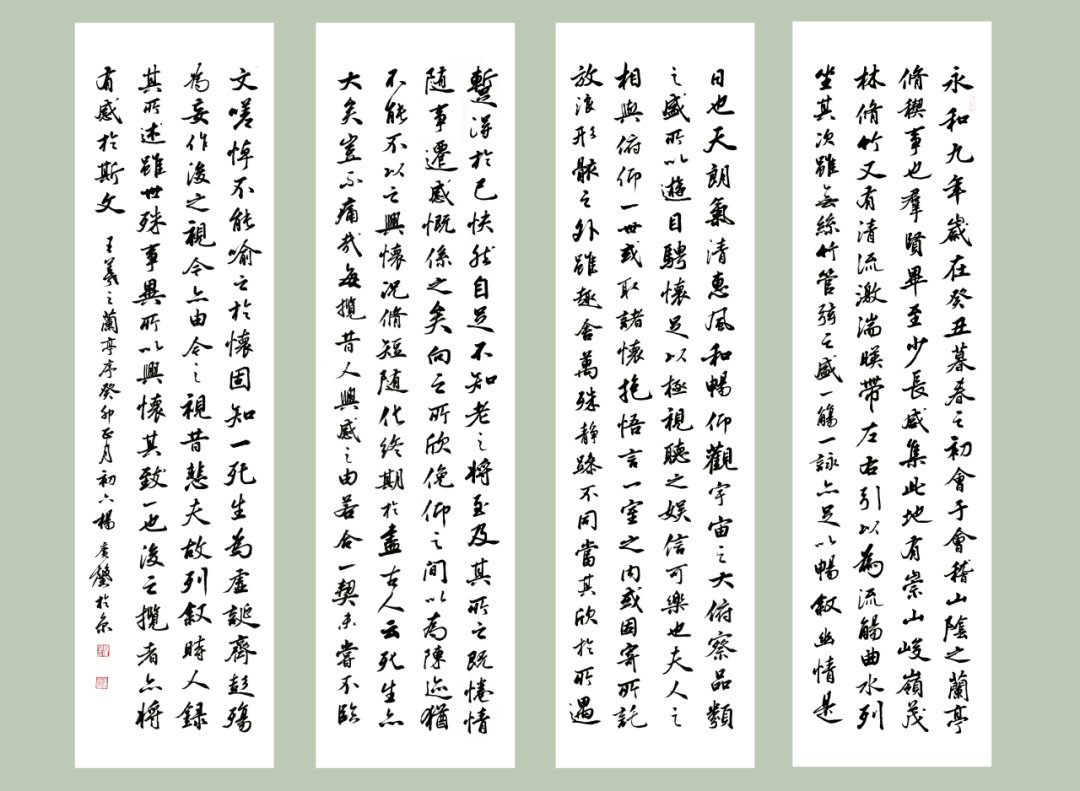 永和九年歲在癸丑暮春之初會于會稽山陰之蘭亭
脩稧事也羣賢畢至少長咸集此地有崇山峻嶺茂
林脩竹又有清流激湍暎帶左右引以為流觴曲水列
坐其次雖無絲竹管弦之盛一觴一詠亦足以暢叙幽情是
日也天朗氣清惠風和暢仰觀宇宙之大俯察品類
之盛所以遊目騁懷足以極視聽之娛信可樂也夫人之
相與俯仰一世或取諸懷抱悟言一室之內或因寄所託
放浪形骸之外雖趣舍萬殊静躁不同當其欣於所遇
暫得於己怏然自足不知老之將至及其所之既惓情
隨事遷感慨係之矣向之所欣俛仰之間以為陳迹猶
不能不以之興懷況脩短隨化終期於盡古人云死生亦
大矣豈不痛哉每攬昔人興感之由若合一契未嘗不臨
文嗟悼不能喻之於懷固知一死生為虛誕齊彭殤
為妄作後之視今亦由今之視昔悲夫故列叙時人錄
其所述雖世殊事異所以興懷其致一也後之攬者亦將
有感於斯文 王羲之蘭亭序癸卯正月初六楊廣馨於京